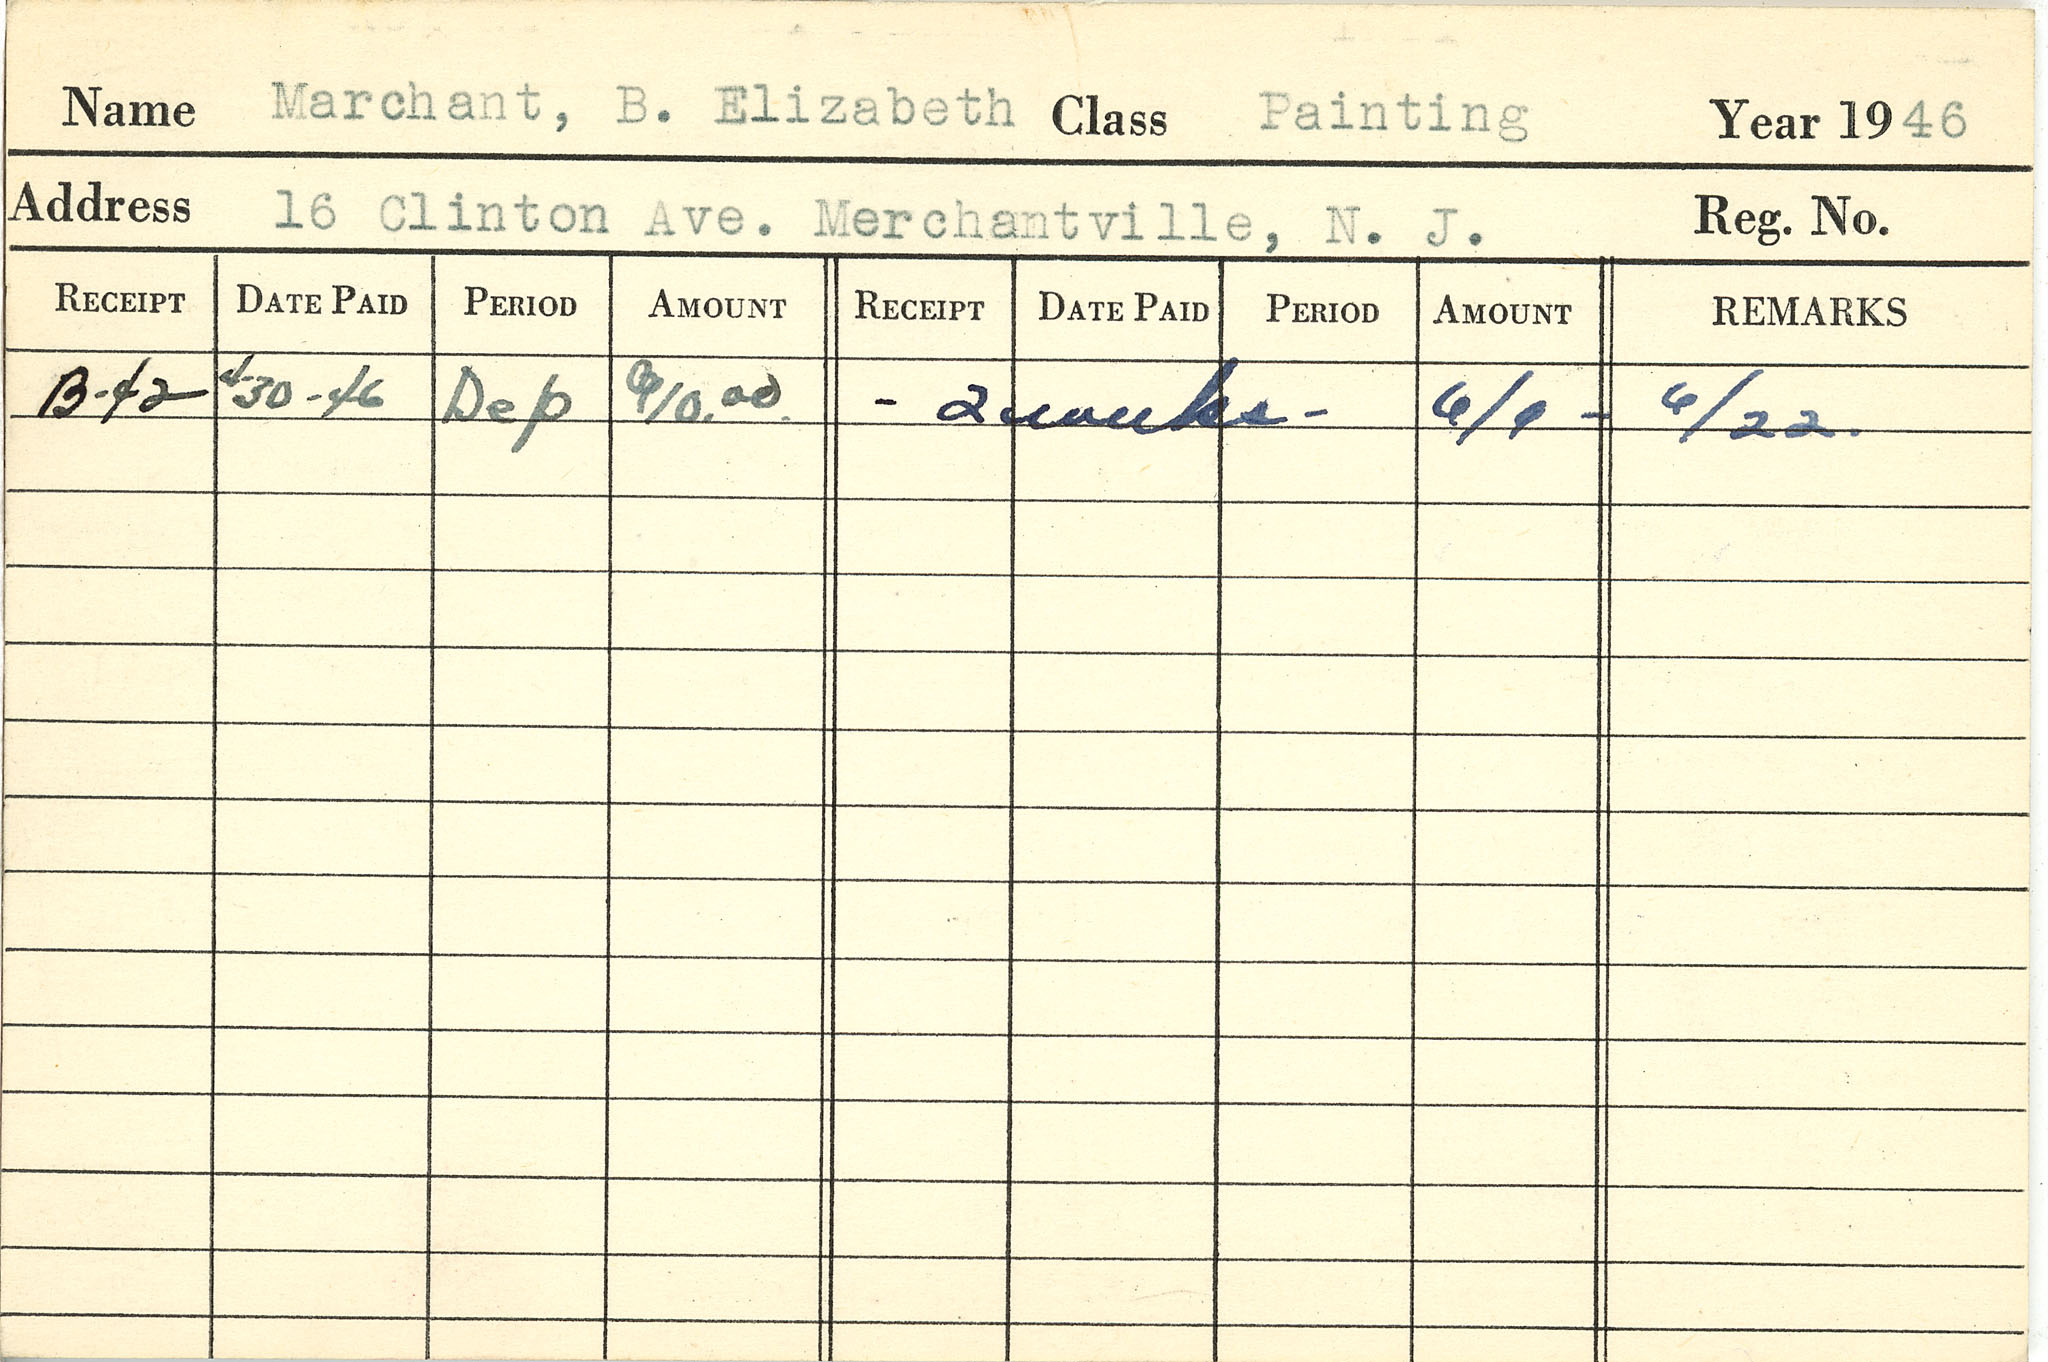 Name Marchant, B. Elizabeth Class Painting Year 1946
Address 16 Clinton Ave. Merchantville, N. J. Reg. No.
RECEIPT DATE PAID PERIOD AMOUNT RECEIPT DATE PAID PERIOD AMOUNT REMARKS
B-42 4-30-46 Dep $10.00 - 2 weeks - 6/9 - 6/22.